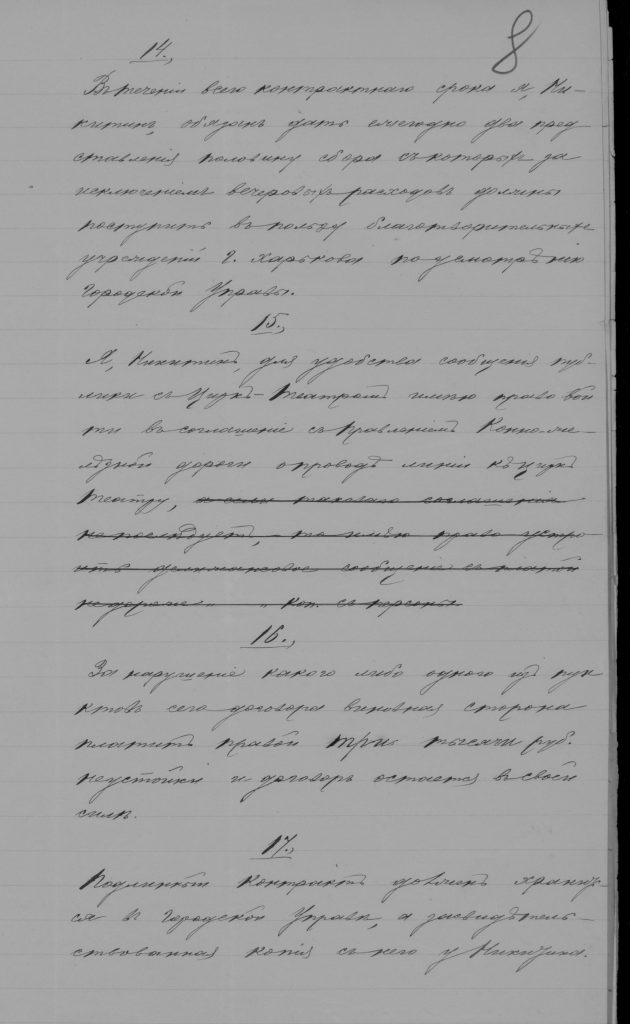 8
14.,
Въ теченіи всего контрактнаго срока я, Ни-
китинъ, обязанъ дать ежегодно два пред-
ставленія половину сбора съ которыхъ за
исключеніемъ вечеровыхъ расходовъ должны
поступить въ пользу благотворительныхъ
учрежденій г. Харькова по усмотрѣнію
Городской Управы.
15.,
Я, Никитинъ, для удобства сообщенія пуб-
лики съ Циркъ-Театромъ имѣю право вой
ти въ соглашеніе съ Правленіемъ Конно-же-
лѣзной дороги о проводѣ линіи къ Циркъ
Театру, а если таковаго соглашенія
не послѣдуетъ, - то имѣю право устро-
ить дилижансовое сообщеніе съ платой
не дороже " " коп. съ персоны.
16.,
За нарушеніе какого либо одного изъ пун
ктовъ сего договора виновная сторона
платитъ правой три тысячи руб.
неустойки и договоръ остается въ своей
силѣ.
17.,
Подлинный контрактъ долженъ хранить-
ся въ Городской Управѣ, а засвидѣтель-
ствованная копія съ него у Никитина.